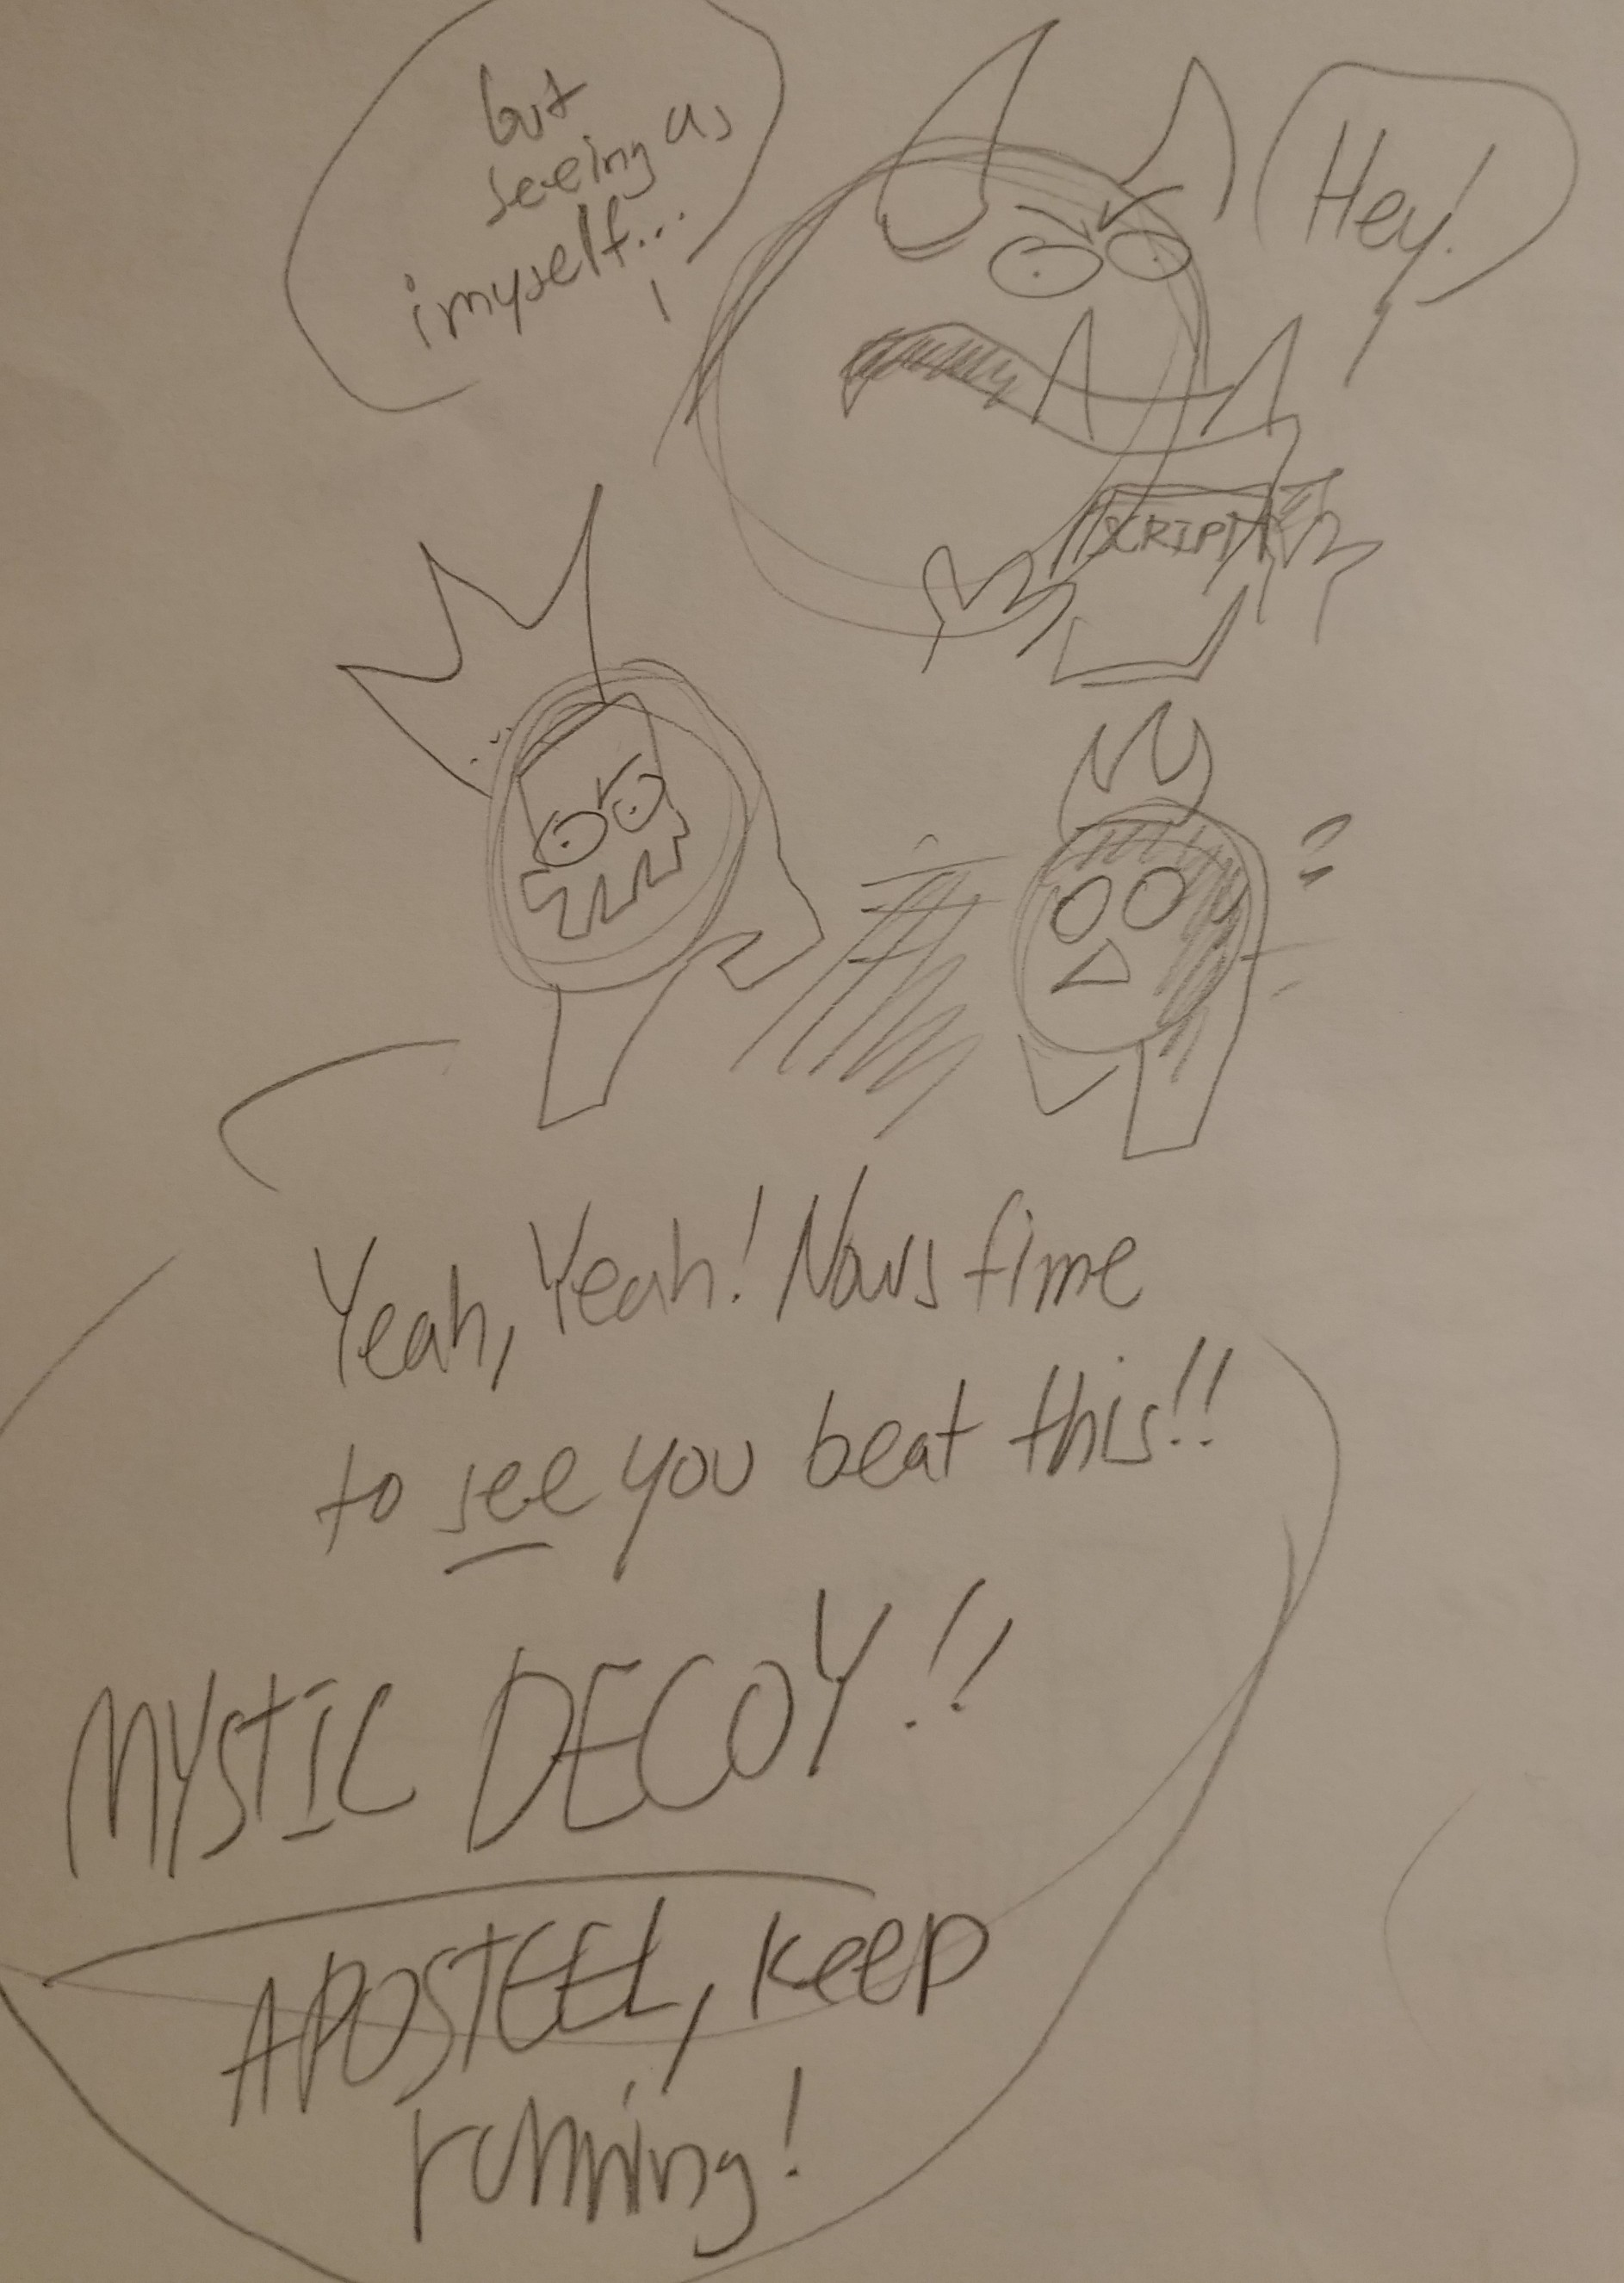 but
seeing as
i myself...
Hey!
SCRIPT
Yeah, Yeah! Nows time
to see you beat this!!
MYSTIC DECOY!!
APOSTEEL, keep
running!